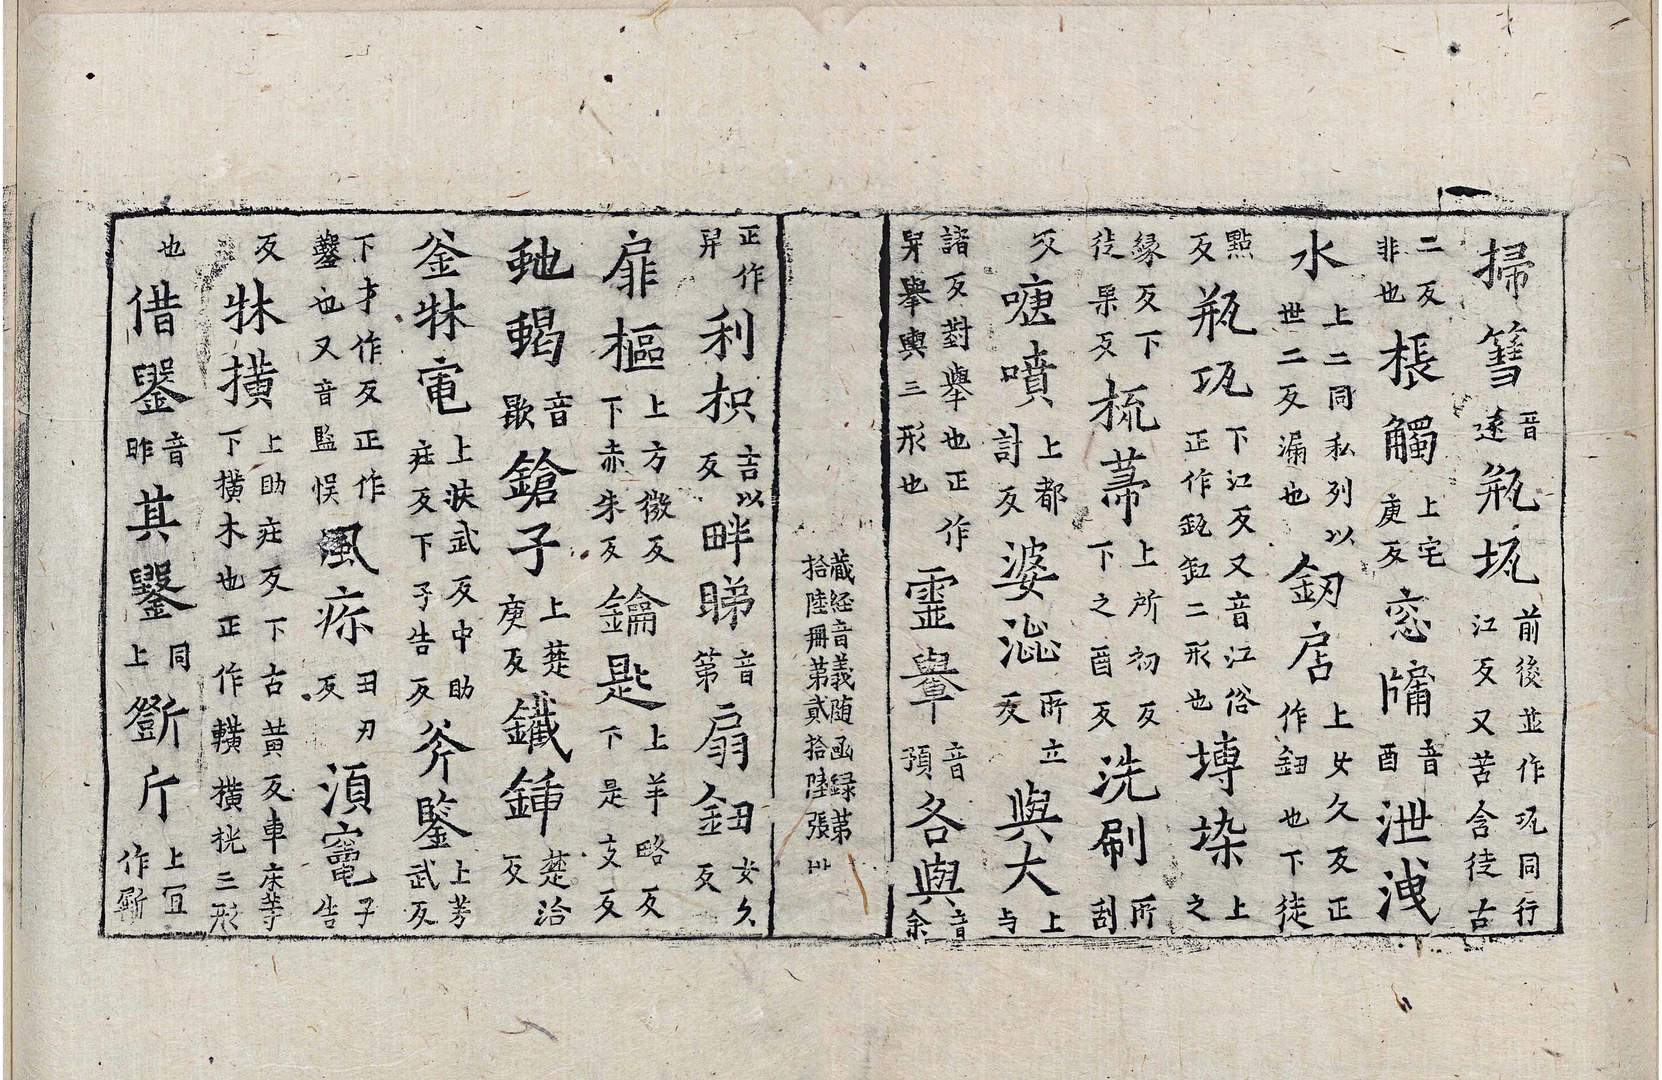 掃篲音遂瓶坑前後並作瓨同行江反又苦含徒古
二反非也棖觸上宅庚反窓牖音酉泄洩
水上二同私列以世二反漏也釰店上女久反正作鈕也下徒
點反瓶瓨下江反又音江俗正作缻缸二形也塼垜上之
緣反下徒果反梳菷上所初反下之酉反洗刷所刮
反嚏噴上都計反婆澁所立反與大上与
諸反對舉也正作舁舉輿三形也霊轝音預各與音余
藏經音義随函録第
拾陸冊第貳拾陸張
正作舁利枳吉以反畔睇音第扇鈕女久反
扉樞上方微反下赤朱反鑰匙上羊略反下是支反
虵蝎音歇鎗子上楚庚反鐵鍤楚洽反
釜牀竃上扶武反中助庄反下子告反斧鑒上芳武反
下才作反正作鑿也又音監悮風疢丑刃反湏竃子告
反牀撗上助庄反下古黃反車床等下橫木也正作轒橫桄三形
也借鑿音昨其鑿同上斵斤上宜作斷